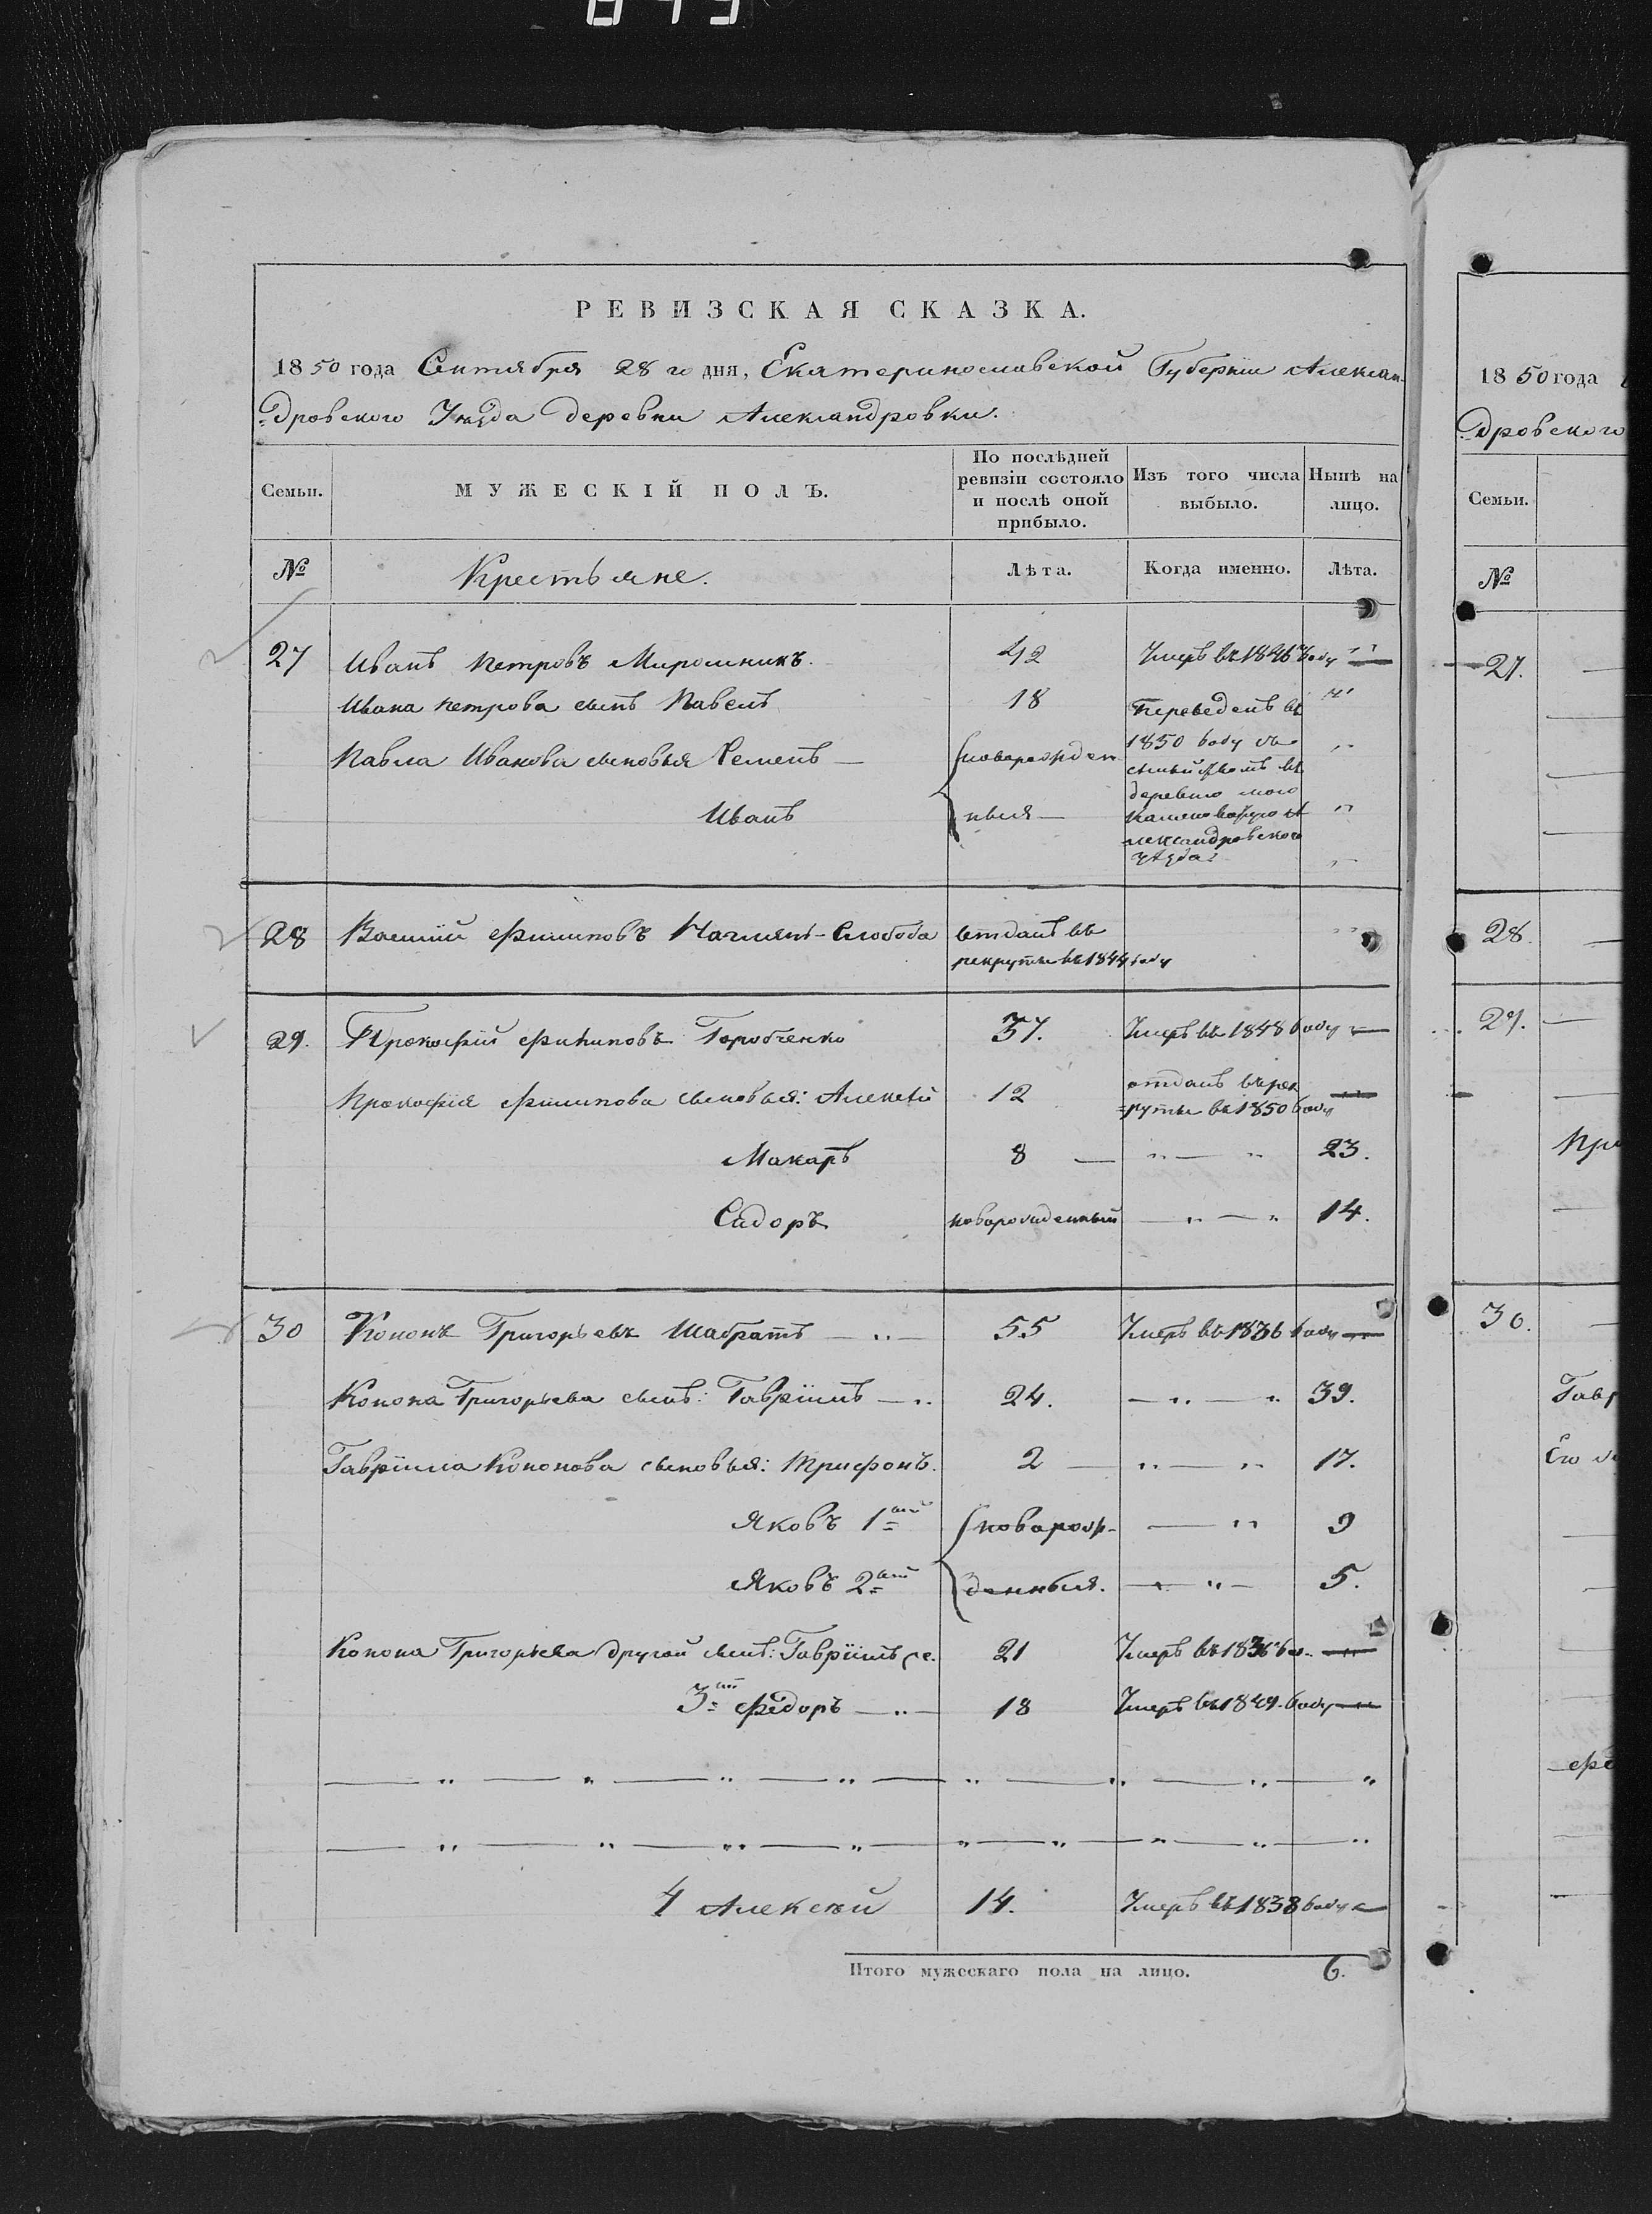 РЕВИЗСКАЯ СКАЗКА.
1850 года Сентября 28 го дня, Екатеринославской Губернии Алексан-
дровского Уезда деревни Александровки.
Семьи.
МУЖЕСКІЙ ПОЛЪ.
По послѣдней ревизіи состояло и послѣ оной прибыло.
Изъ того числа выбыло.
Нынѣ на лицо.
№
Крестьяне.
Лѣта.
Когда именно.
Лѣта.
27 Иванъ Петровъ Мирошникъ. 42 Умеръ въ году
Ивана Петрова сынъ Павелъ 18 Переведенъ въ
Павла Иванова сыновья Семенъ — новорожден- 1850 году
Иванъ ныя — деревню мою
Александровского
уѣзда
28 Василій Филиповъ -Слобода отданъ въ
рекруты въ 1844 году
29. Прокофій Филиповъ Горобченко 37. Умеръ въ 1848 году
Прокофія Филипова сыновья: Алексѣй 12 отданъ въ рек
руты въ 1850 году
Макаръ 8 — „ — „ 23.
Сидоръ новорожденный — „ — „ 14.
30 Кононъ Григорьевъ Шабратъ — „ — 55 Умеръ въ 1836 году
Конона Григорьева сынъ: Гавріилъ — „ 24. — „ — „ 39.
Гавріила Кононова сыновья: Трифонъ. 2 — „ — „ 17.
Яковъ 1ый новорож- — „ 9
Яковъ 2ый денныя. — „ — 5.
Конона Григорьева другой сынъ: Гавріилъ 21 Умеръ въ
3ій Федоръ — „ — 18 Умеръ въ 1849 году
4 Алексѣй 14. Умеръ въ 1838 году
Итого мужескаго пола на лицо. 6.
1850 года
дровского
Семьи.
№
27.
28.
29.
Пр
30.
Гавр
Его